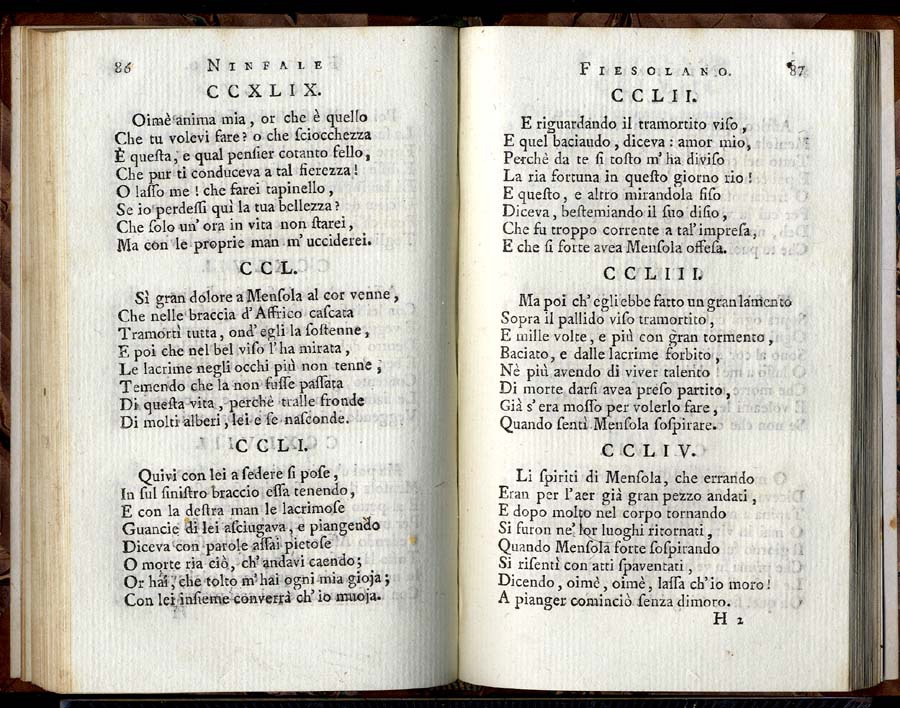 86 NINFALE
CCXLIX.
Oimè anima mia, or che è queſto
Che tu volevi fare? o che ſciocchezza
È queſta, e qual penſier cotanto fello,
Che pur ti conduceva a tal fierezza!
O laſſo me! che farei tapinello,
Se io perdeſſi quì la tua bellezza?
Che ſolo un' ora in vita non ſtarei,
Ma con le proprie man m' ucciderei.
CCL.
Sì gran dolore a Menſola al cor venne,
Che nelle braccia d'Affrico caſcata
Tramortì tutta, ond' egli la ſoſtenne,
E poi che nel bel viſo l'ha mirata,
Le lacrime negli occhi più non tenne,
Temendo che la non fuſſe paſſata
Di queſta vita, perchè tralle fronde
Di molti alberi, lei e ſe naſconde.
CCLI.
Quivi con lei a ſedere ſi poſe,
In ſul ſiniſtro braccio eſſa tenendo,
E con la deſtra man le lacrimoſe
Guancie di lei aſciugava, e piangendo
Diceva con parole aſſai pietoſe
O morte ria ciò, ch' andavi caendo;
Or hai, che tolto m'hai ogni mia gioja;
Con lei inſieme converrà ch' io muoja.
FIESOLANO. 87
CCLII.
E riguardando il tramortito viſo,
E quel baciaudo, diceva: amor mio,
Perchè da te ſi toſto m' ha diviſo
La ria fortuna in queſto giorno rio!
E queſto, e altro mirandola fiſo
Diceva, beſtemiando il ſuo diſio,
Che fu troppo corrente a tal' impreſa,
E che ſi forte avea Menſola offeſa.
CCLIII.
Ma poi ch' egli ebbe fatto un gran lamento
Sopra il pallido viſo tramortito,
E mille volte, e più con gran tormento,
Baciato, e dalle lacrime forbito,
Nè più avendo di viver talento
Di morte darſi avea preſo partito,
Già s' era moſſo per volerlo fare,
Quando ſentì Menſola ſoſpirare.
CCLIV.
Li ſpiriti di Menſola, che errando
Eran per l'aer già gran pezzo andati,
E dopo molto nel corpo tornando
Si furon ne' lor luoghi ritornati,
Quando Menſola forte ſoſpirando
Si riſentì con atti ſpaventati,
Dicendo, oimè, oimè, laſſa ch' io moro!
A pianger cominciò ſenza dimoro.
H 2